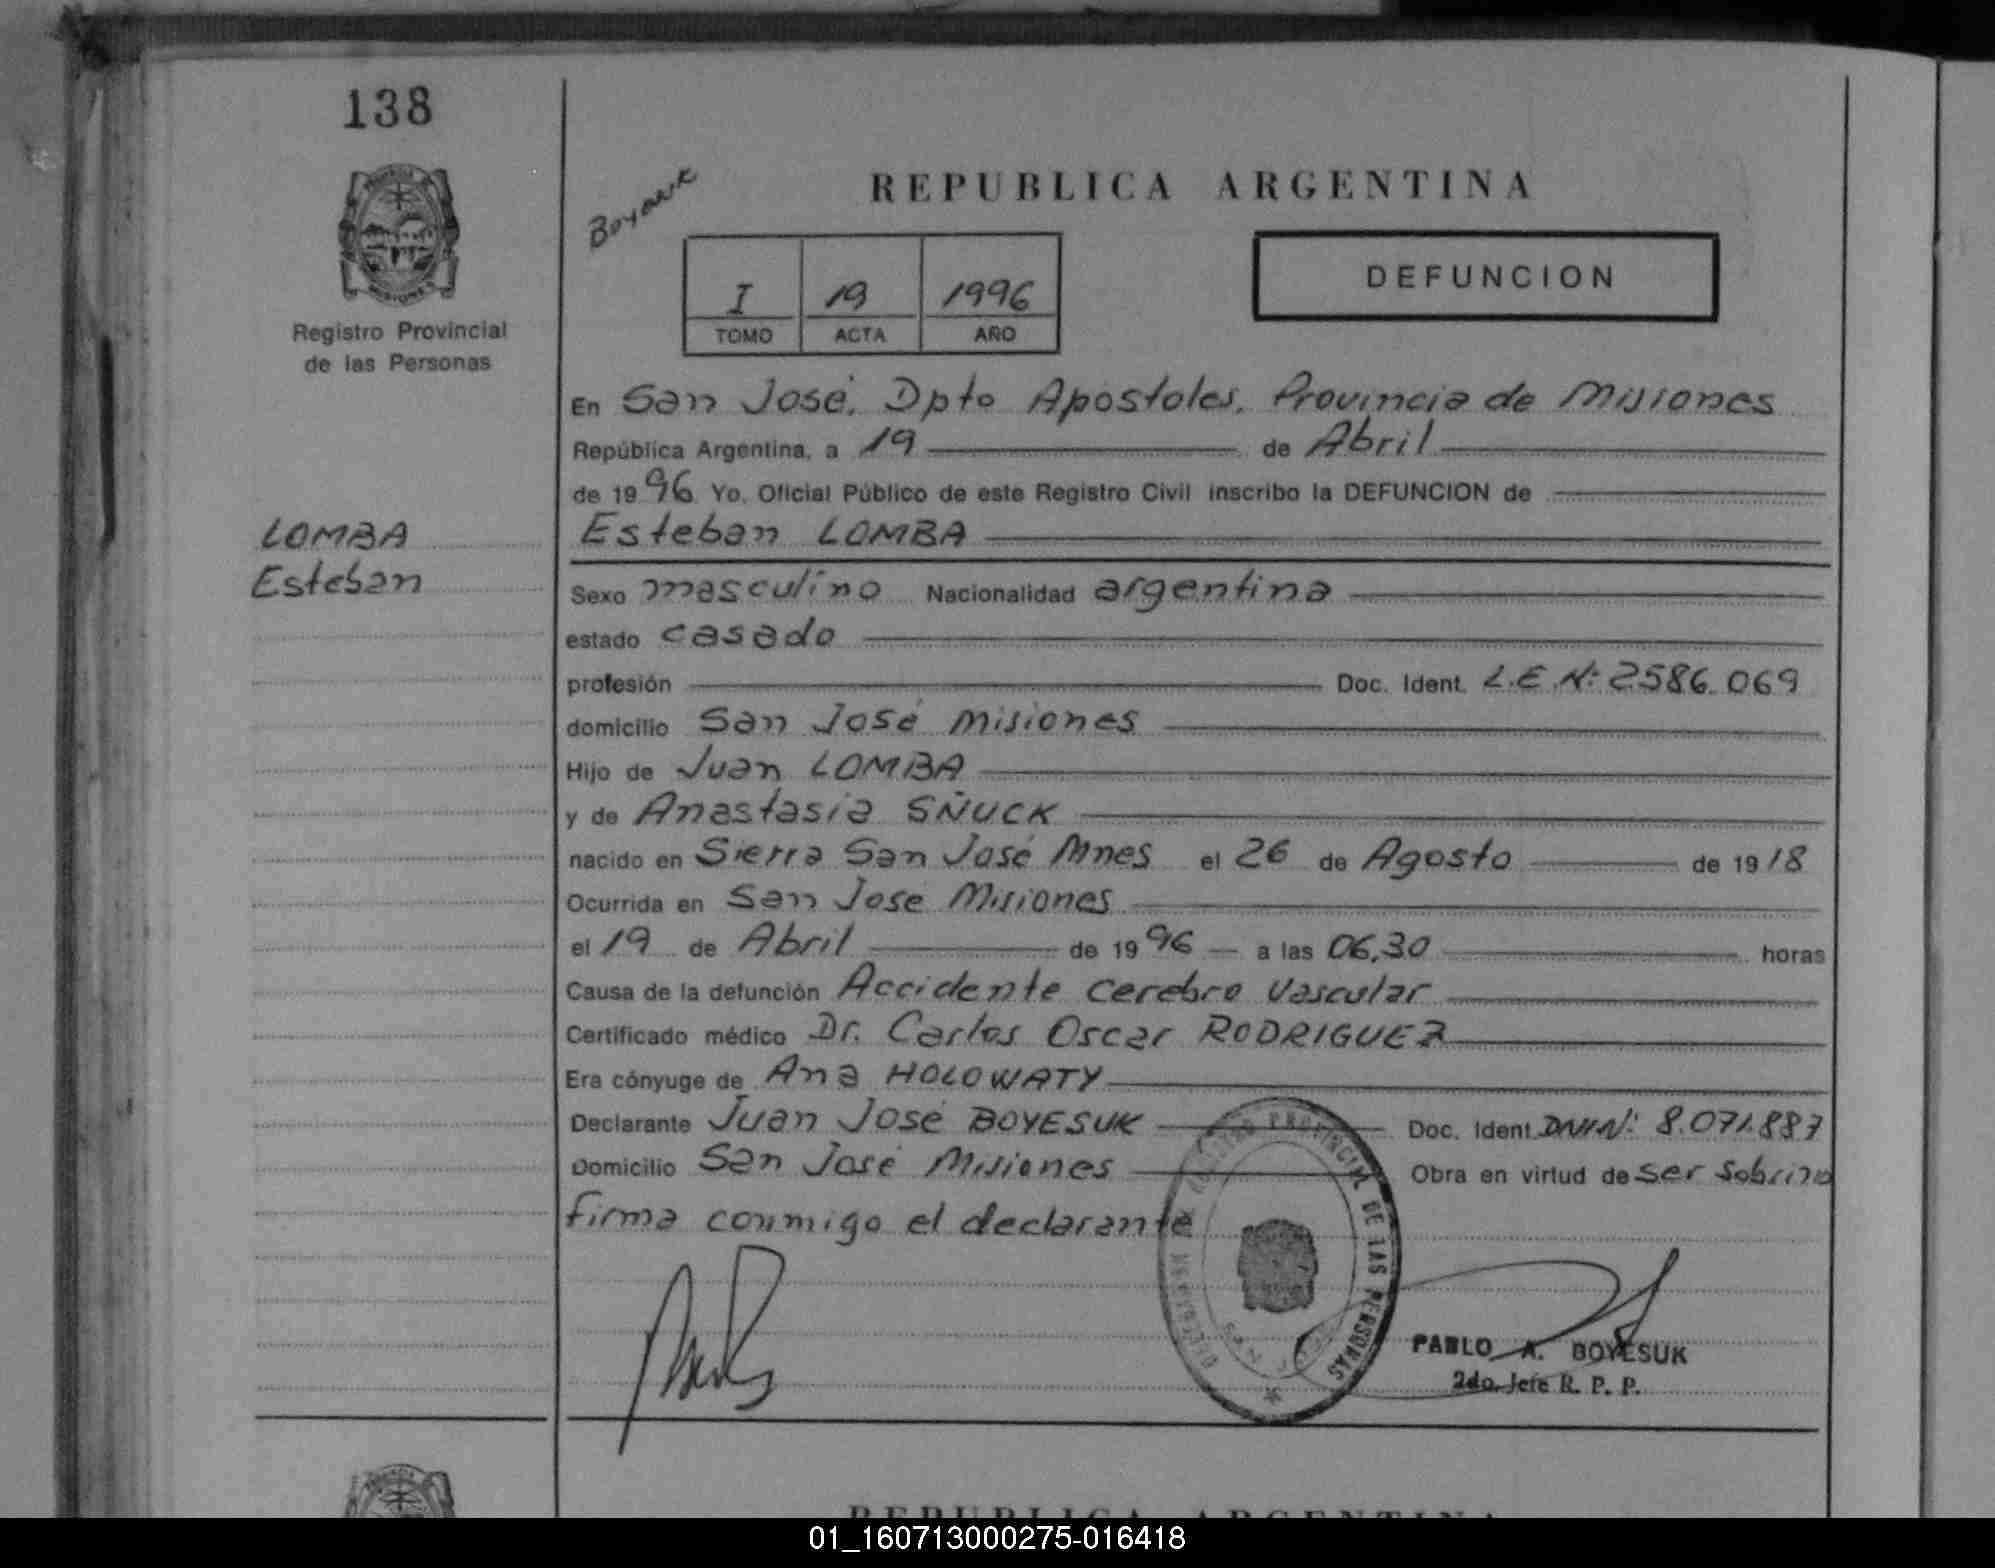 138
PROVINCIA
MISIONES
Registro Provincial
de las Personas
LOMBA
Esteban
REPUBLICA ARGENTINA
I 19 1996
TOMO ACTA AÑO
DEFUNCION
En San José, Dpto Apóstoles, Provincia de Misiones
República Argentina, a 19 de Abril
de 1996 Yo, Oficial Público de este Registro Civil inscribo la DEFUNCION de
Esteban LOMBA
Sexo masculino Nacionalidad argentina
estado casado
profesión Doc. Ident. L.E.Nº 2586.069
domicilio San José Misiones
Hijo de Juan LOMBA
y de Anastasia SÑUCK
nacido en Sierra San José Mnes el 26 de Agosto de 1918
Ocurrida en San José Misiones
el 19 de Abril de 1996 a las 06,30 horas
Causa de la defunción Accidente cerebro vascular
Certificado médico Dr. Carlos Oscar RODRIGUEZ
Era cónyuge de Ana HOLOWATY
Declarante Juan José BOYESUK Doc. Ident. DNI Nº 8.071.887
Domicilio San José Misiones Obra en virtud de ser sobrino
firma conmigo el declarante
REGISTRO PROVINCIAL DE LAS PERSONAS
PABLO A. BOYESUK
2do. Jefe R. P. P.
REPUBLICA ARGENTINA
01_160713000275-016418